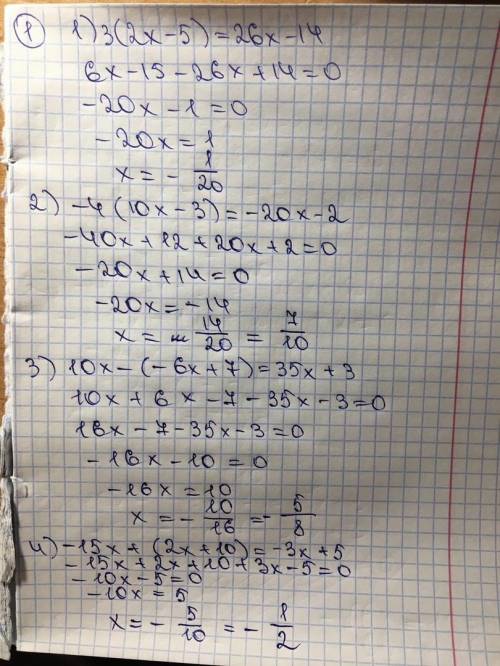 ① 1) 3(2x-5)=26x-14
6x-15-26x+14=0
-20x-1=0
-20x=1
x=-1/20
2) -4(10x-3)=-20x-2
-40x+12+20x+2=0
-20x+14=0
-20x=-14
x= 14/20 = 7/10
3) 10x-(-6x+7)=35x+3
10x+6x-7-35x-3=0
16x-7-35x-3=0
-16x-10=0
-16x=10
x=-10/16=-5/8
4) -15x+(2x+10)=-3x+5
-15x+2x+10+3x-5=0
-10x-5=0
-10x=5
x=-5/10=-1/2